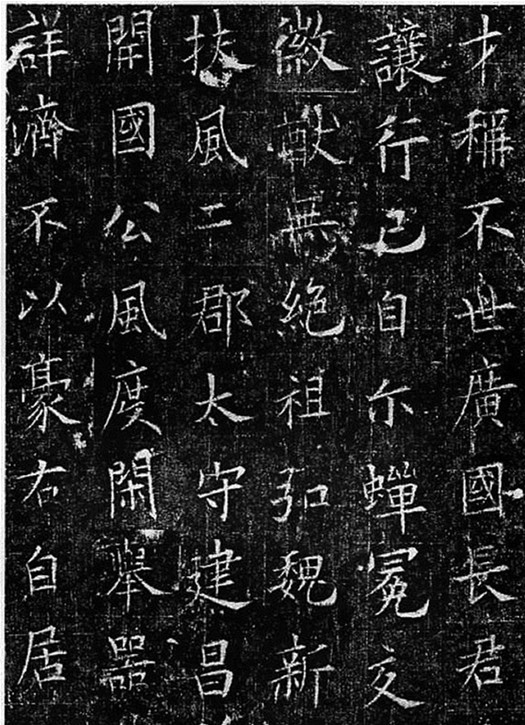 才稱不世廣國長君
讓行己自尒蟬冕交
徽猷無絕祖弘魏新
扶風二郡太守建昌
開國公風度閑舉器
詳濟不以豪右自居